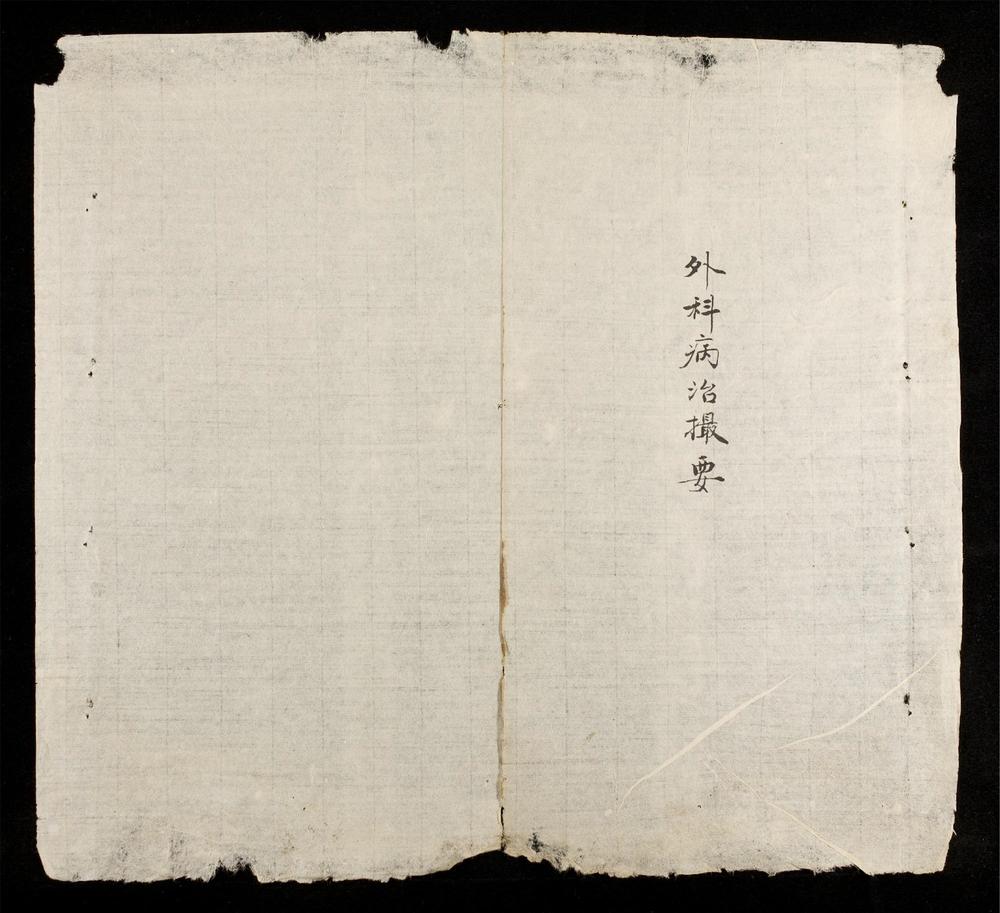 外科病治撮要